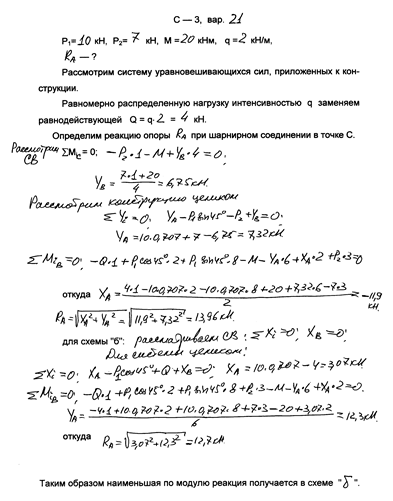 С — 3, вар. 21
P₁= 10 кН, P₂= 7 кН, M = 20 кНм, q = 2 кН/м,
R_A — ?
Рассмотрим систему уравновешивающихся сил, приложенных к кон-
струкции.
Равномерно распределенную нагрузку интенсивностью q заменяем
равнодействующей Q = q·2 = 4 кН.
Определим реакцию опоры R_A при шарнирном соединении в точке С.
Рассмотрим СВ ΣM_ic = 0; -P₂·1-M+Y_B·4=0;
Y_B = (7·1+20)/4 = 6,75 кН.
Рассмотрим конструкцию целиком
ΣY_i=0; Y_A-P₁sin45°-P₂+Y_B=0;
Y_A=10·0,707+7-6,75=7,32кН
ΣM_iB=0; -Q·1+P₁cos45°·2+P₁sin45°·8-M-Y_A·6+X_A·2+P₂·3=0
откуда X_A = (4·1-10·0,707·2-10·0,707·8+20+7,32·6-7·3)/2 = -11,9 кН
R_A=√(X_A²+Y_A²) = √(11,9²+7,32²) = 13,96кН.
для схемы "б": рассматриваем СВ: ΣX_i=0; X_B=0;
Для системы целиком:
ΣX_i=0; X_A-P₁cos45°+Q+X_B=0; X_A=10·0,707-4=3,07кН
ΣM_iB=0; -Q·1+P₁cos45°·2+P₁sin45°·8+P₂·3-M-Y_A·6+X_A·2=0.
Y_A = (-4·1+10·0,707·2+10·0,707·8+7·3-20+3,07·2)/6 = 12,3кН.
откуда R_A=√(3,07²+12,3²)=12,7кН.
Таким образом наименьшая по модулю реакция получается в схеме "б".